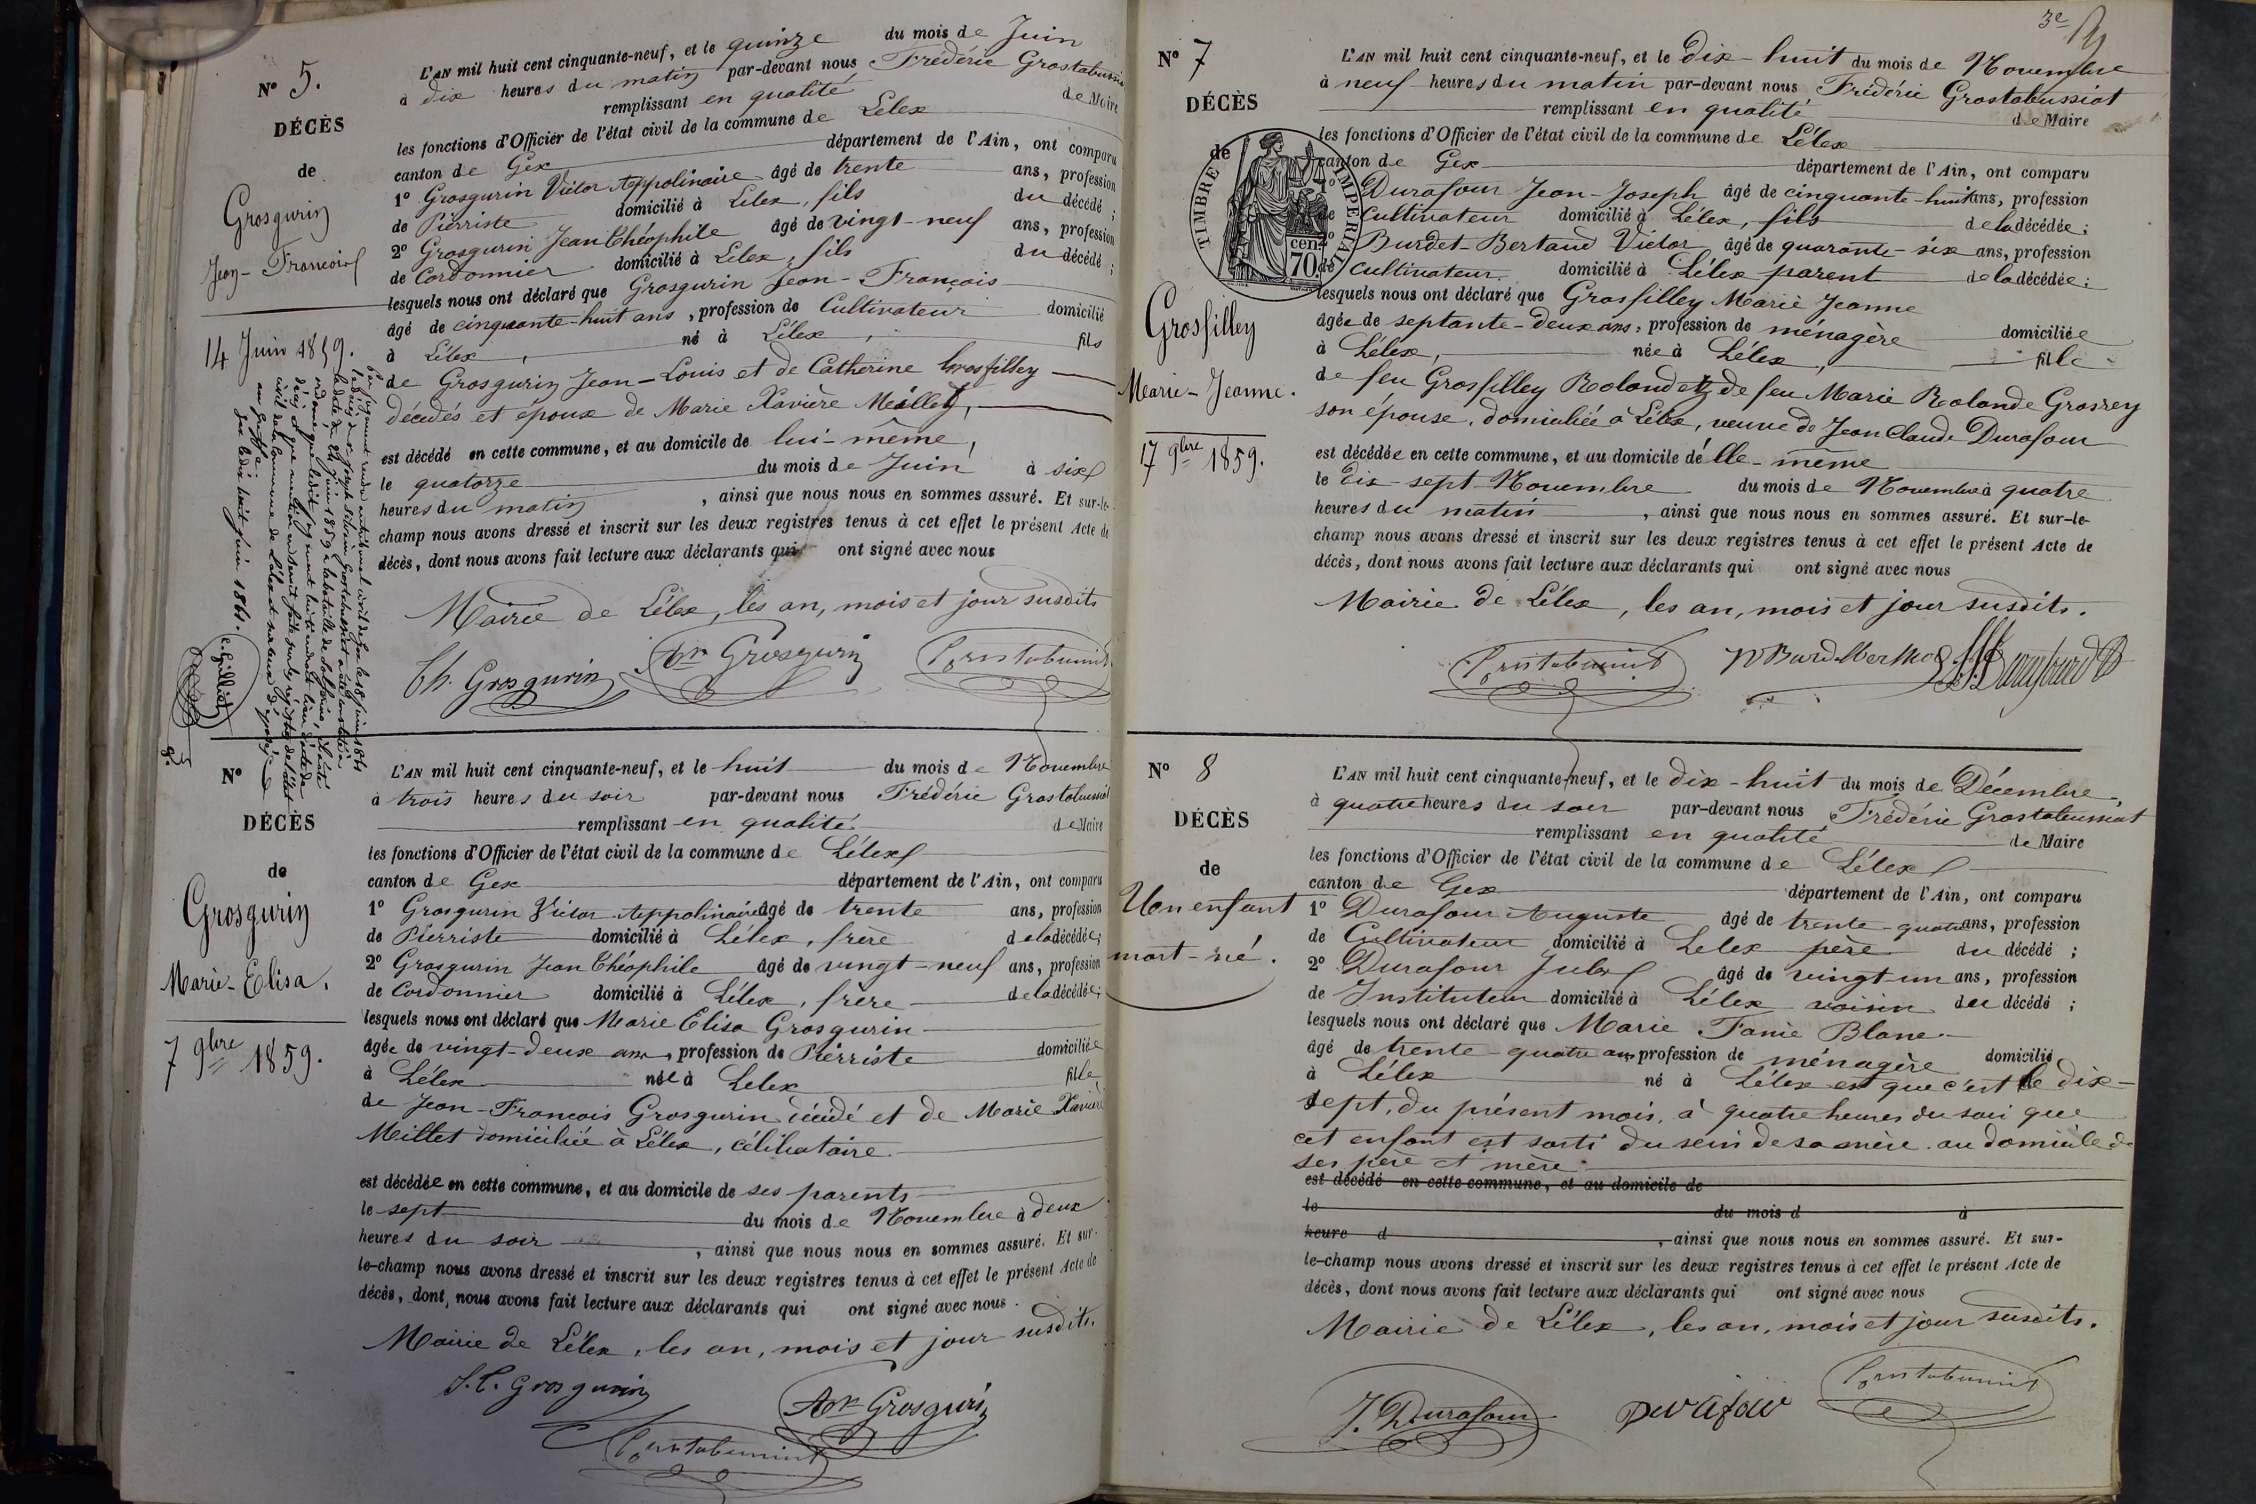 Nº 5.
DÉCÈS
de
Grosgurin
Jean-Francois
14 Juin 1859.
L'AN mil huit cent cinquante-neuf, et le quinze du mois de Juin
à dix heures du matin par-devant nous Frédéric Grostabussiat
remplissant en qualité de Maire
les fonctions d'Officier de l'état civil de la commune de Lélex
canton de Gex département de l'Ain, ont comparu
1º Grosgurin Victor Appolinaire âgé de trente ans, profession
de Pierriste domicilié à Lélex, fils du décédé ;
2º Grosgurin Jean Théophile âgé de vingt-neuf ans, profession
de Cordonnier domicilié à Lélex, fils du décédé ;
lesquels nous ont déclaré que Grosgurin Jean-Francois
âgé de cinquante-huit ans, profession de Cultivateur domicilié
à Lélex, né à Lélex, fils
de Grosgurin Jean-Louis et de Catherine Grosfilley
décédés et époux de Marie Xavière Millet,
est décédé en cette commune, et au domicile de lui-même,
le quatorze du mois de Juin à six
heures du matin, ainsi que nous nous en sommes assuré. Et sur-le-
champ nous avons dressé et inscrit sur les deux registres tenus à cet effet le présent Acte de
décès, dont nous avons fait lecture aux déclarants qui ont signé avec nous
Mairie de Lélex, les an, mois et jour susdits
Th. Grosgurin Ar Grosgurin Grostabussiat
Par jugement rendu par le tribunal civil de Gex le 18 juin 1861
la date du 24 Juin 1859 à la bataille de Solférino, a été
ordonné que ledit jugement lui tiendrait lieu d'acte de
décès et que mention en serait faite sur les registres de l'état
civil de la commune de Lélex
au Greffe.
Gex le dix huit juin 1861.
Nº
DÉCÈS
de
Grosgurin
Marie-Elisa.
7 9bre 1859.
L'AN mil huit cent cinquante-neuf, et le huit du mois de Novembre
à trois heures du soir par-devant nous Frédéric Grostabussiat
remplissant en qualité de Maire
les fonctions d'Officier de l'état civil de la commune de Lélex
canton de Gex département de l'Ain, ont comparu
1º Grosgurin Victor Appolinaire âgé de trente ans, profession
de Pierriste domicilié à Lélex, frère de la décédée;
2º Grosgurin Jean Théophile âgé de vingt-neuf ans, profession
de Cordonnier domicilié à Lélex, frère de la décédée;
lesquels nous ont déclaré que Marie Elisa Grosgurin
âgée de vingt-deux ans, profession de Pierriste domiciliée
à Lélex née à Lelex fille
de Jean-Francois Grosgurin décédé et de Marie Xavière
Millet domiciliée à Lélex, célibataire
est décédée en cette commune, et au domicile de ses parents
le sept du mois de Novembre à deux
heures du soir, ainsi que nous nous en sommes assuré. Et sur-
le-champ nous avons dressé et inscrit sur les deux registres tenus à cet effet le présent Acte de
décès, dont nous avons fait lecture aux déclarants qui ont signé avec nous.
Mairie de Lélex, les an, mois et jour susdits.
J.T. Grosgurin Ar Grosgurin
Grostabussiat
3e
Nº 7
DÉCÈS
de
TIMBRE IMPERIAL
70 cen.
Grosfilley
Marie-Jeanne.
17 9bre 1859.
L'AN mil huit cent cinquante-neuf, et le dix-huit du mois de Novembre
à neuf heures du matin par-devant nous Frédéric Grostabussiat
remplissant en qualité de Maire
les fonctions d'Officier de l'état civil de la commune de Lélex
canton de Gex département de l'Ain, ont comparu
1º Durafour Jean-Joseph âgé de cinquante-huit ans, profession
de Cultivateur domicilié à Lélex, fils de la décédée;
2º Burdet-Bertand Victor âgé de quarante-six ans, profession
de cultivateur domicilié à Lélex parent de la décédée;
lesquels nous ont déclaré que Grosfilley Marie Jeanne
âgée de septante-deux ans, profession de ménagère domiciliée
à Lélex, née à Lélex, fille
de feu Grosfilley Roland et de feu Marie Rolande Grosrey
son épouse, domiciliée à Lélex, veuve de Jean Claude Durafour
est décédée en cette commune, et au domicile d'elle-même
le dix-sept Novembre du mois de Novembre à quatre
heures du matin, ainsi que nous nous en sommes assuré. Et sur-le-
champ nous avons dressé et inscrit sur les deux registres tenus à cet effet le présent Acte de
décès, dont nous avons fait lecture aux déclarants qui ont signé avec nous
Mairie de Lélex, les an, mois et jour susdits.
Grostabussiat
Nº 8
DÉCÈS
de
Un enfant
mort-né.
L'AN mil huit cent cinquante-neuf, et le dix-huit du mois de Décembre,
à quatre heures du soir par-devant nous Frédéric Grostabussiat
remplissant en qualité de Maire
les fonctions d'Officier de l'état civil de la commune de Lélex
canton de Gex département de l'Ain, ont comparu
1º Durafour Auguste âgé de trente-quatre ans, profession
de Cultivateur domicilié à Lélex père du décédé ;
2º Durafour Jules âgé de vingt-un ans, profession
de Instituteur domicilié à Lélex voisin du décédé ;
lesquels nous ont déclaré que Marie Fanie Blanc
âgé de trente-quatre ans profession de ménagère domicilié
à Lélex né à Lélex et que c'est le dix-
sept, du présent mois, à quatre heures du soir que
cet enfant est sorti du sein de sa mère au domicile de
ses père et mère
est décédé en cette commune, et au domicile de
le du mois d à
heure d, ainsi que nous nous en sommes assuré. Et sur-
le-champ nous avons dressé et inscrit sur les deux registres tenus à cet effet le présent Acte de
décès, dont nous avons fait lecture aux déclarants qui ont signé avec nous
Mairie de Lélex, les an, mois et jour susdits.
J. Durafour Durafour Grostabussiat